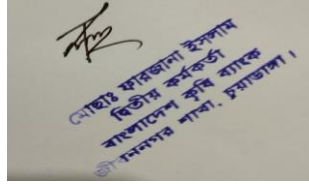 মোছাঃ ফারজানা ইসলাম
দ্বিতীয় কর্মকর্তা
বাংলাদেশ কৃষি ব্যাংক
জীবননগর শাখা, চুয়াডাঙ্গা।